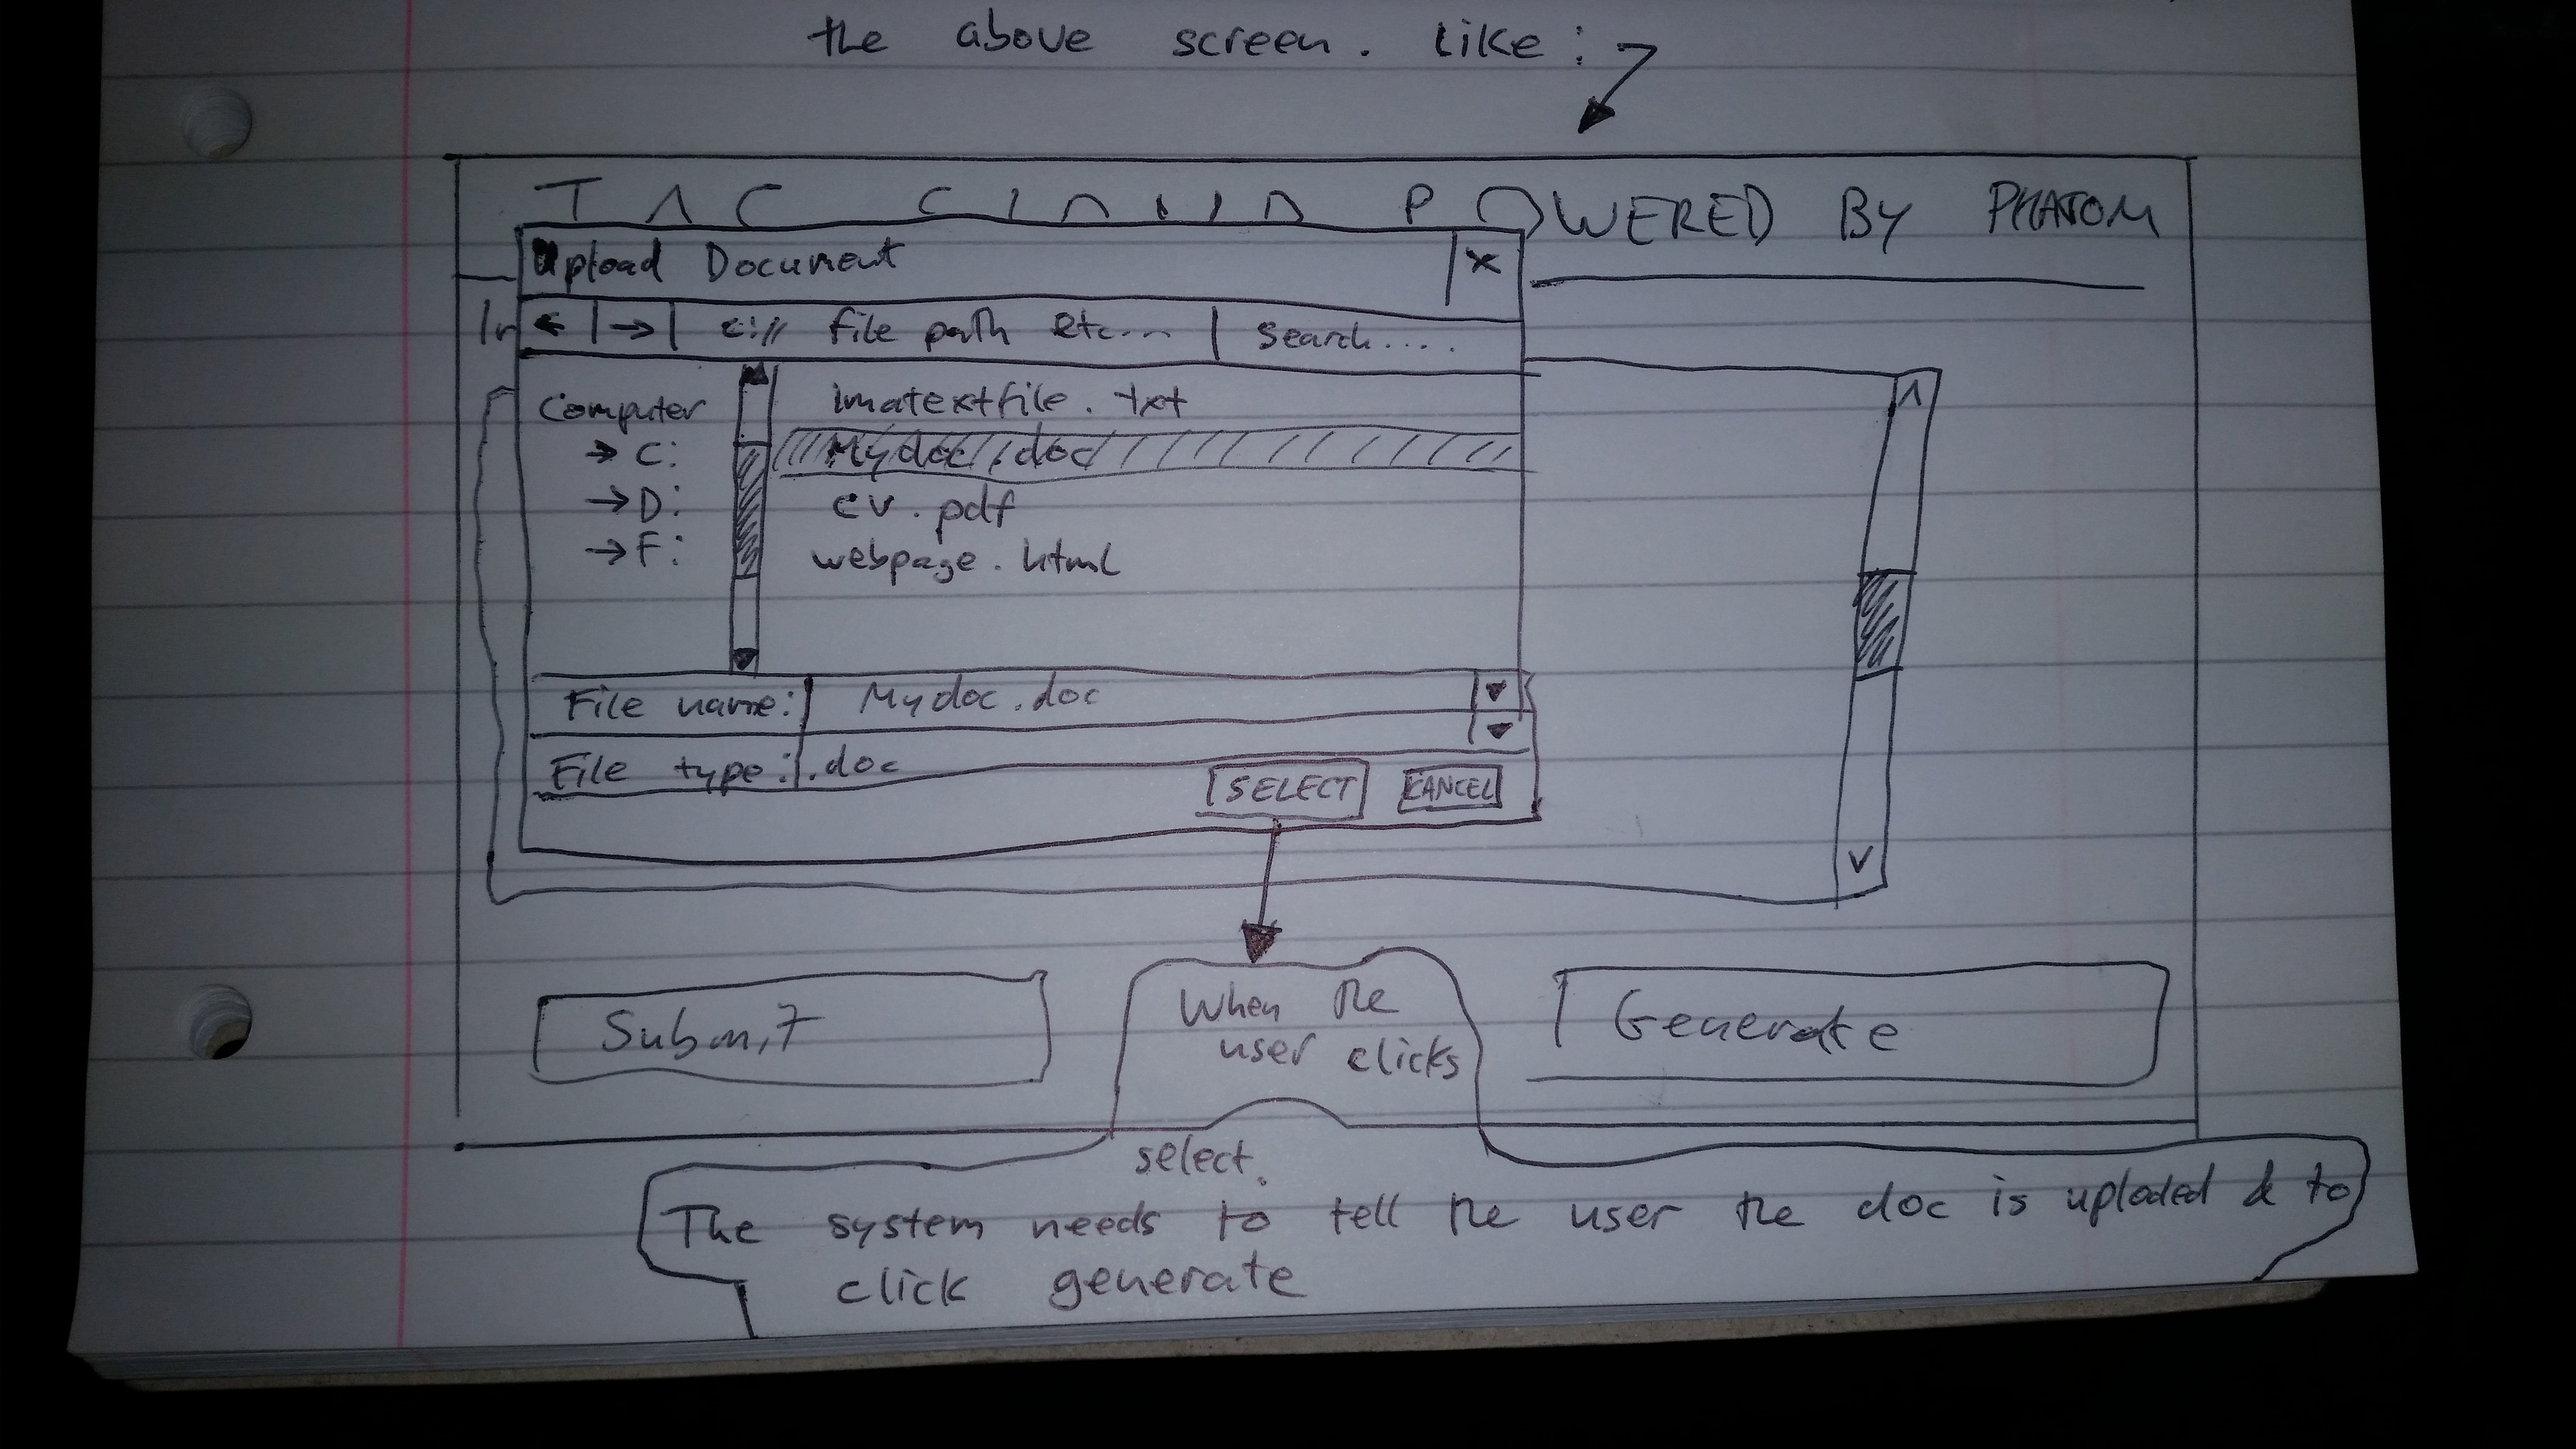 the above screen. Like:
POWERED BY PHATOM
Upload Document X
In ← | → | c:\\ file path etc... | search....
Computer
→ C:
→ D:
→ F:
imatextfile.txt
Mydoc.doc
cv.pdf
webpage.html
File name: Mydoc.doc
File type: .doc
SELECT CANCEL
Submit
Generate
When the
user clicks
select.
The system needs to tell the user the doc is uploded d to
click generate